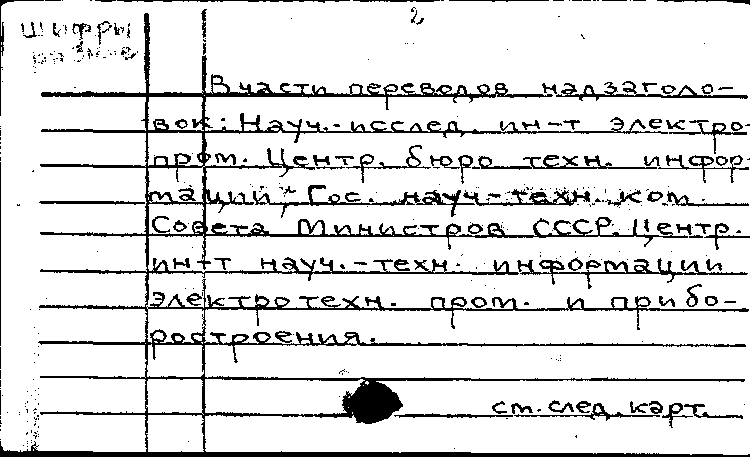 2
Шифры
разные
В части переводов надзаголо-
вок: Науч.-исслед. ин-т электро-
пром. Центр. бюро техн. инфор-
мации; Гос. науч-техн. ком.
Совета Министров СССР. Центр.
ин-т науч.-техн. информации
электротехн. пром. и прибо-
ростроения.
см. след. карт.